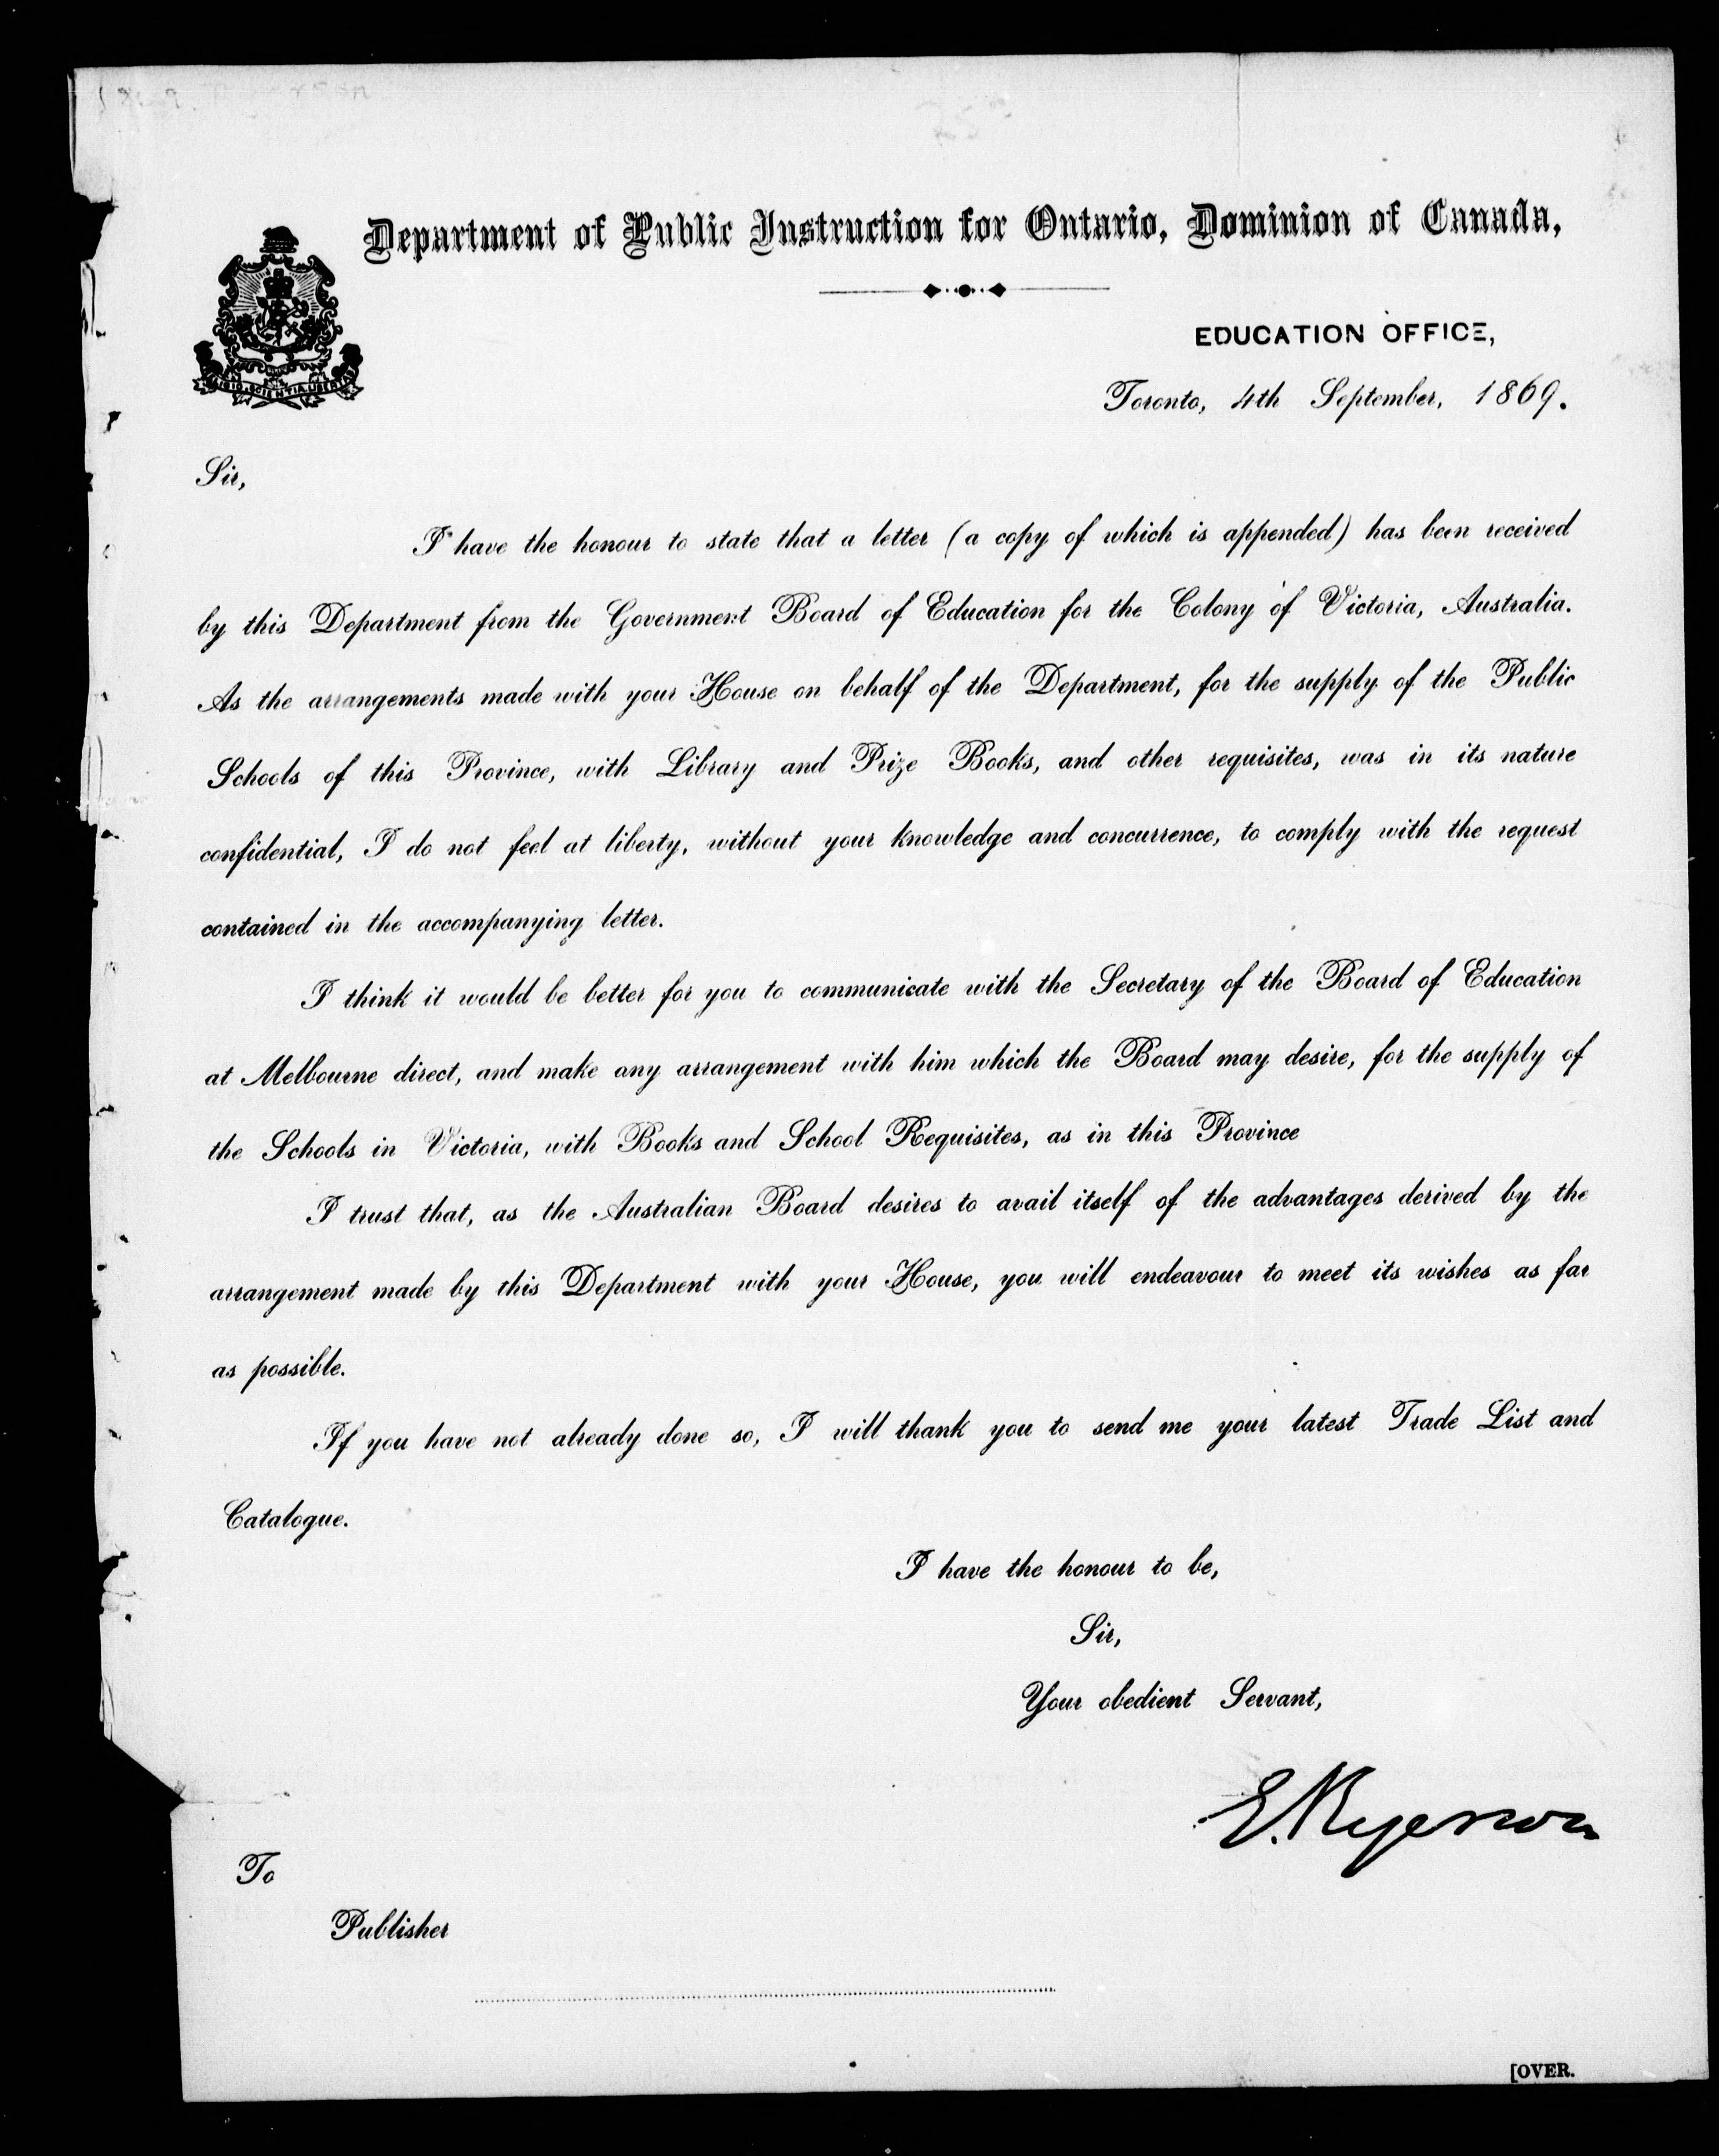 Department of Public Instruction for Ontario, Dominion of Canada,
EDUCATION OFFICE,
Toronto, 4th September, 1869.
Sir,
I have the honour to state that a letter (a copy of which is appended) has been received
by this Department from the Government Board of Education for the Colony of Victoria, Australia.
As the arrangements made with your House on behalf of the Department, for the supply of the Public
Schools of this Province, with Library and Prize Books, and other requisites, was in its nature
confidential, I do not feel at liberty, without your knowledge and concurrence, to comply with the request
contained in the accompanying letter.
I think it would be better for you to communicate with the Secretary of the Board of Education
at Melbourne direct, and make any arrangement with him which the Board may desire, for the supply of
the Schools in Victoria, with Books and School Requisites, as in this Province
I trust that, as the Australian Board desires to avail itself of the advantages derived by the
arrangement made by this Department with your House, you will endeavour to meet its wishes as far
as possible.
If you have not already done so, I will thank you to send me your latest Trade List and
Catalogue.
I have the honour to be,
Sir,
Your obedient Servant,
E. Ryerson
To
Publisher
[OVER.